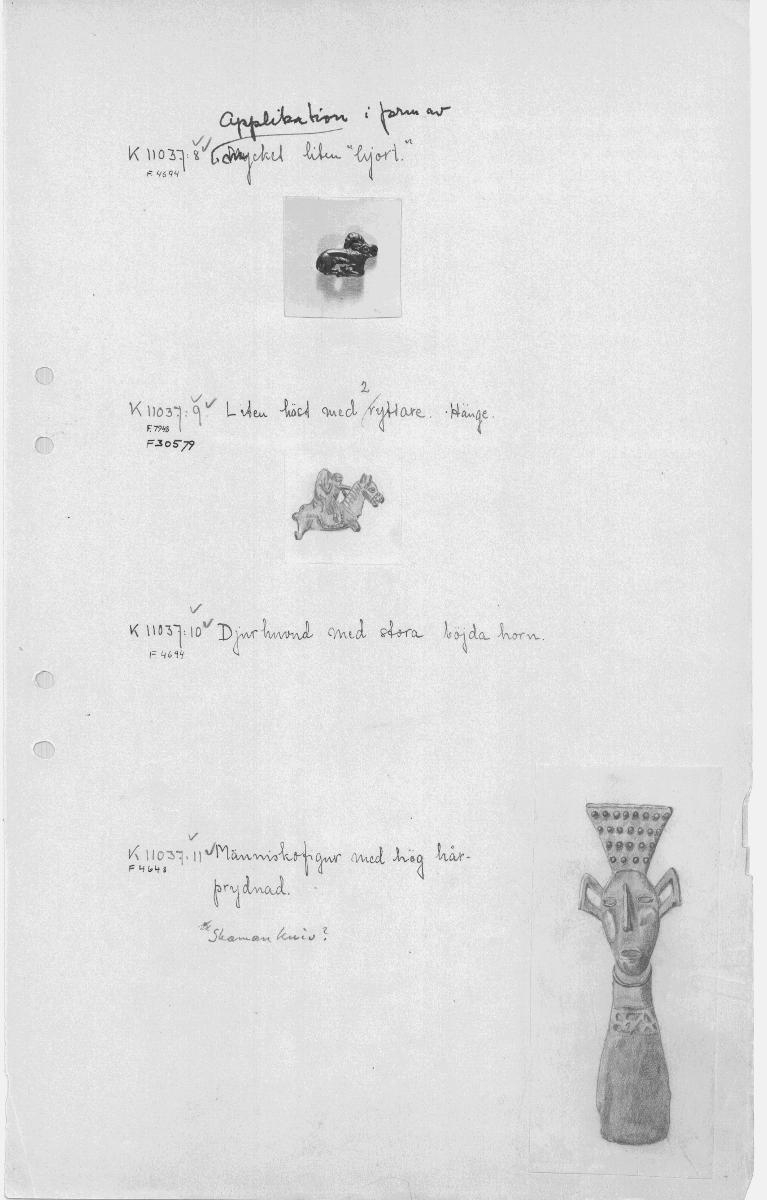 Applikation i form av
K 11037:8 mycket liten "hjort."
F 4694
2
K 11037:9. Liten häst med ryttare. Hänge.
F. 7948
F 30579
K 11037:10 Djurhuvud med stora böjda horn.
F 4694
K 11037:11 Människofigur med hög hår-
F 4648
prydnad.
Shamankniv?